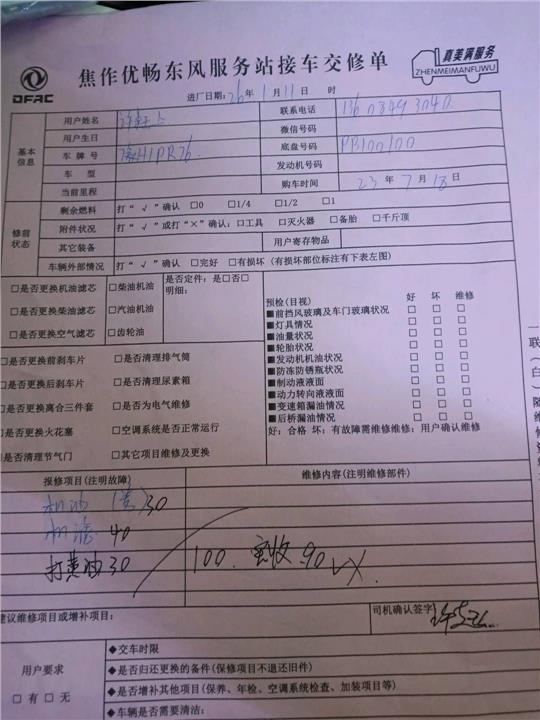 DFAC
焦作优畅东风服务站接车交修单
真美满服务
ZHENMEIMANFUWU
进厂日期：26年1月11日 时
基本信息
用户姓名 联系电话
用户生日 微信号码
车牌号 豫H1PR76 底盘号码 PB100100
车型 发动机号码
当前里程 购车时间 23年7月18日
修前状态
剩余燃料 打“√”确认 □0 □1/4 □1/2 □1
附件状况 打“√”或打“×”确认：□工具 □灭火器 □备胎 □千斤顶
其它装备 用户寄存物品
车辆外部情况 打“√”确认 □完好 □有损坏（有损坏部位标注有下表左图）
□是否更换机油滤芯 □柴油机油 是否定件：是□否□
明细：
□是否更换柴油滤芯 □汽油机油
□是否更换空气滤芯 □齿轮油
□是否更换前刹车片 □是否清理排气筒
□是否更换后刹车片 □是否清理尿素箱
□是否更换离合三件套 □是否为电气维修
□是否更换火花塞 □空调系统是否正常运行
□是否清理节气门 □其它项目维修及更换
预检(目视) 好 坏 维修
■前挡风玻璃及车门玻璃状况 □ □ □
■灯具情况 □ □ □
■油量状况 □ □ □
■轮胎状况 □ □ □
■发动机机油状况 □ □ □
■防冻防锈瓶状况 □ □ □
■制动液液面 □ □ □
■动力转向液液面 □ □ □
■变速箱漏油情况 □ □ □
■后桥漏油情况 □ □ □
好：合格 坏：有故障需维修维修：用户确认维修
报修项目(注明故障) 维修内容(注明维修部件)
机油 30
机滤 40
打黄油 30 100. 实收.90 VX.
建议维修项目或增补项目： 司机确认签字
用户要求
□有 □无
◆交车时限
◆是否归还更换的备件(保修项目不退还旧件)
◆是否增补其他项目(保养、年检、空调系统检查、加装项目等)
◆车辆是否需要清洁：
一
联
（
白
）
随